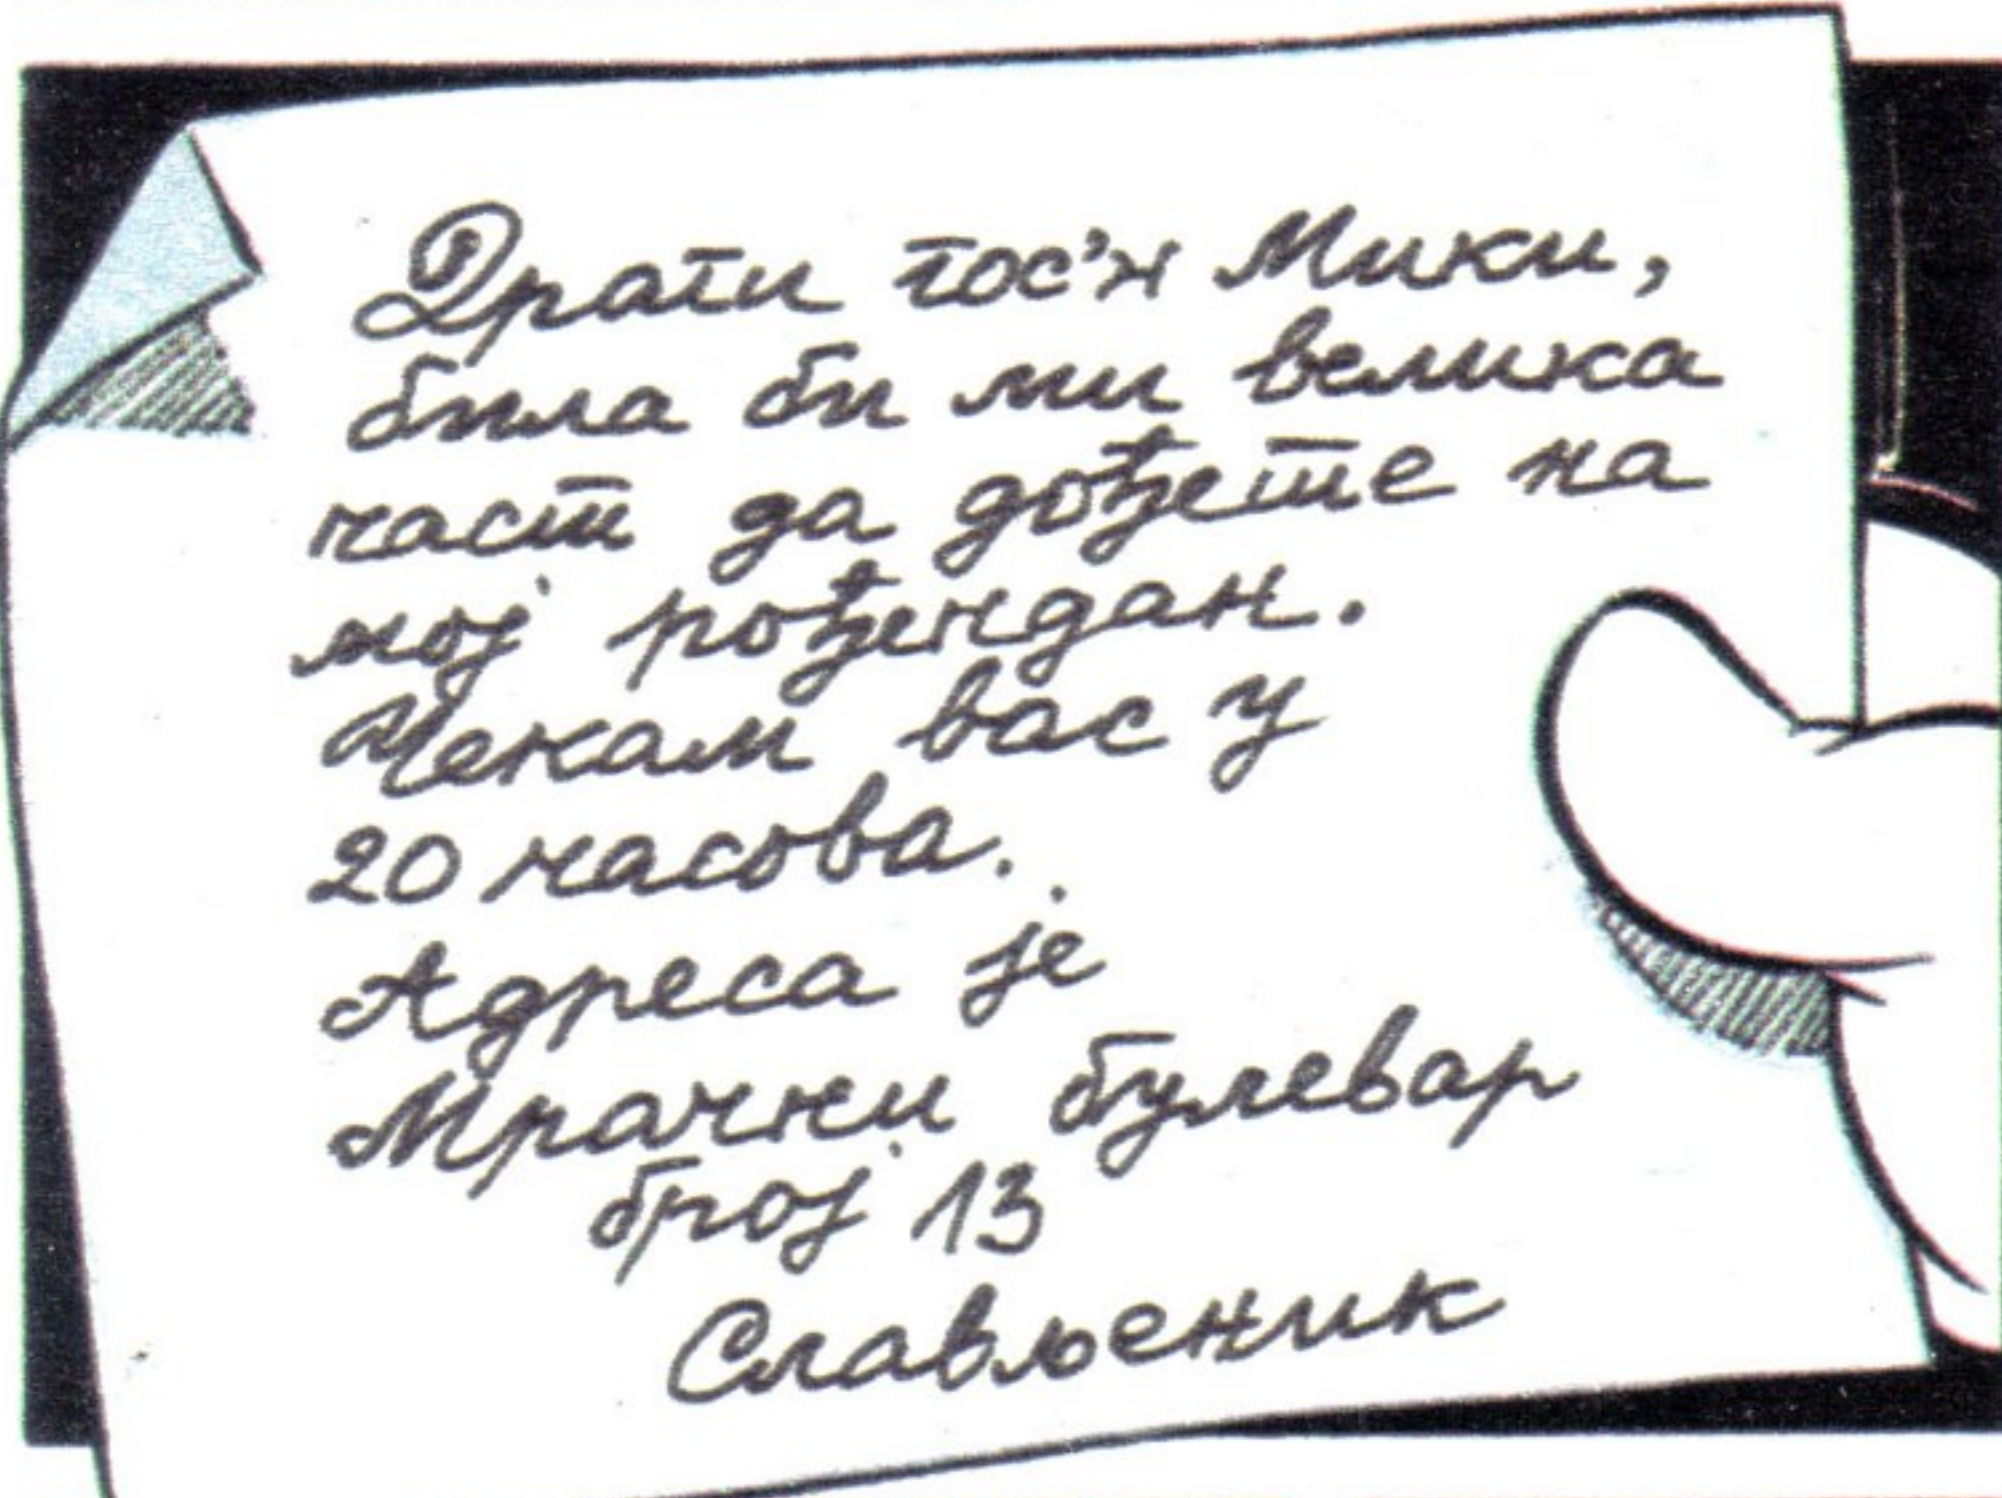 Драги гос'н Мики,
била би ми велика
част да дођете на
мој рођендан.
Чекам вас у
20 часова.
Адреса је
Мрачни булевар
број 13
Слављеник